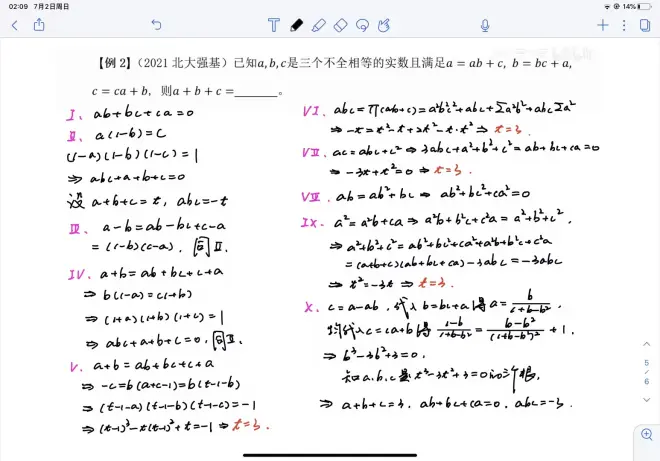 02:09 7月2日周日
14%
【例 2】（2021 北大强基）已知a, b, c是三个不全相等的实数且满足a = ab + c, b = bc + a,
c = ca + b, 则a + b + c =______。
I. ab+bc+ca=0
II. a(1-b)=c
(1-a)(1-b)(1-c)=1
⇒ abc+a+b+c=0
设 a+b+c=t, abc=-t
III. a-b=ab-bc+c-a
=(c-b)(c-a). 同II.
IV. a+b=ab+bc+c+a
⇒ b(1-a)=c(1+b)
⇒ (1+a)(1+b)(1+c)=1
⇒ abc+a+b+c=0, 同II.
V. a+b=ab+bc+c+a
⇒ -c=b(a+c-1)=b(t-1-b)
⇒ (t-1-a)(t-1-b)(t-1-c)=-1
⇒ (t-1)³-t(t-1)²+t=-1 ⇒ t=3.
VI. abc=∏(ab+c)=a²b²c²+abc+∑a²b²+abc∑a²
⇒ -t=t²-t+2t²-t·t² ⇒ t=3.
VII. ac=abc+c² ⇒ 3abc+a²+b²+c²=ab+bc+ca=0
⇒ -3t+t²=0 ⇒ t=3.
VIII. ab=ab²+bc ⇒ ab²+bc²+ca²=0
IX. a²=a²b+ca ⇒ a²b+b²c+c²a=a²+b²+c².
⇒ a²+b²+c²=ab²+bc²+ca²+a²b+b²c+c²a
=(a+b+c)(ab+bc+ca)-3abc=-3abc
⇒ t²=-3t ⇒ t=3.
X. c=a-ab, 代入b=bc+a得 a=b/(1+b-b²).
均代入c=ca+b得 (1-b)/(1+b-b²)=(b-b²)/(1+b-b²)²+1.
⇒ b³-3b²+3=0.
知a.b.c是x³-3x²+3=0的三个根,
⇒ a+b+c=3. ab+bc+ca=0. abc=-3.
5
6